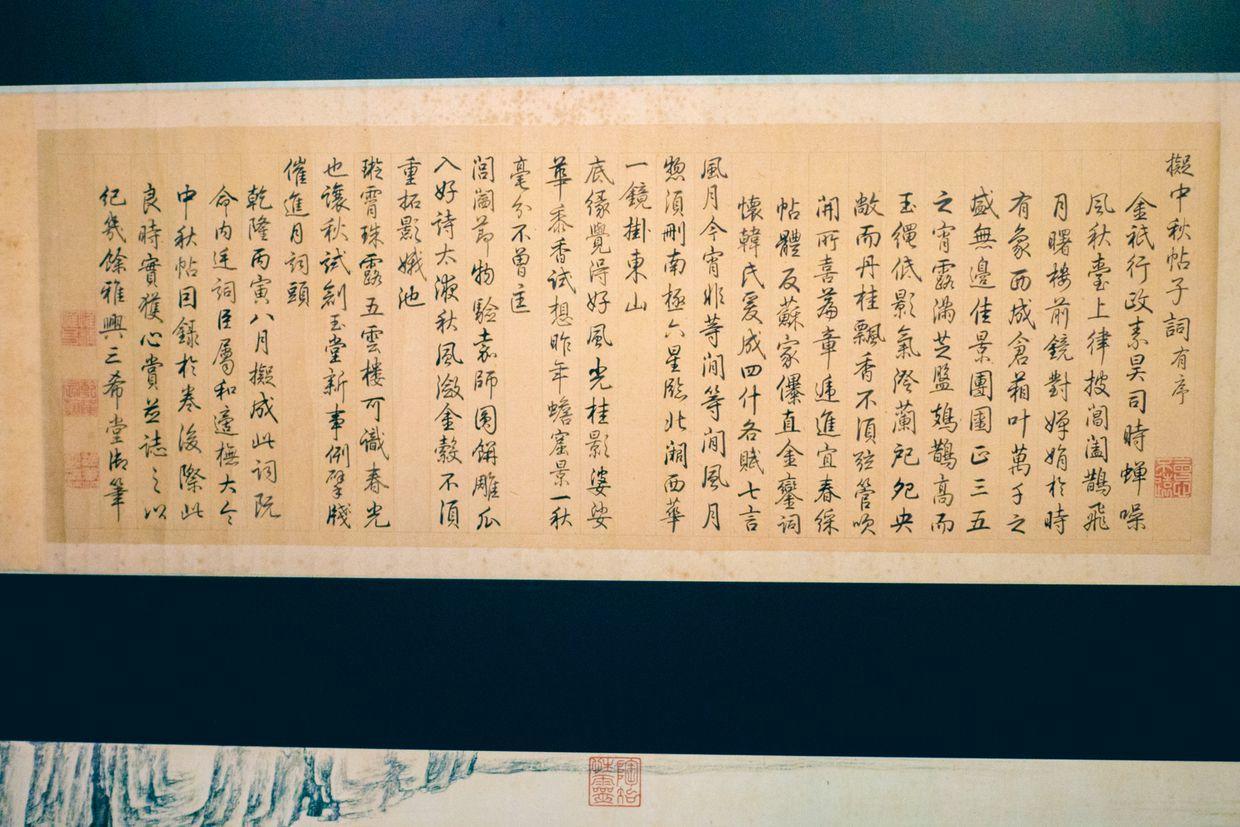 擬中秋帖子詞有序
金祇行政素昊司時蟬噪
風秋臺上律披閶闔鵲飛
月曙樓前鏡對嬋娟於時
有象西成倉葙叶萬千之
盛無邊佳景團圞正三五
之宵露滿芝盤鳷鵲高而
玉繩低影氣澄蘭戺央
敞而丹桂飄香不須弦管吹
開所喜篇章遞進宜春綵
帖體反蘇家儤直金鑾詞
懷韓氏爰成四什各賦七言
風月今宵非等閒等閒風月
惣須刪南極六星臨北闕西華
一鏡掛東山
底緣覺得好風光桂影婆娑
華黍香試想昨年蟾窟景一秋
毫分不曾
閶闔節物驗袁師圓餅雕瓜
入好詩太液秋風潋金縠不須
重拓影娥池
璇霄珠露五雲樓可識春光
也讓秋試創玉堂新事例擘牋
催進月詞頭
乾隆丙寅八月擬成此詞既
命內廷詞臣屬和適橅大令
中秋帖因錄於卷後際此
良時實獲心賞並誌之以
紀幾餘雅興三希堂御筆
陶冶性靈